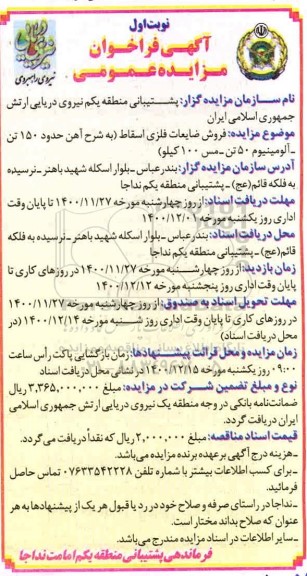 نوبت اول
آگهی فراخوان
مزایده عمومی
نیروی راهبردی
نام سازمان مزایده گزار: پشتیبانی منطقه یکم نیروی دریایی ارتش
جمهوری اسلامی ایران
موضوع مزایده: فروش ضایعات فلزی اسقاط (به شرح آهن حدود ۱۵۰ تن
ـ آلومینیوم ۵۰ تن ـ مس ۱۰۰ کیلو)
آدرس سازمان مزایده گزار: بندرعباس ـ بلوار اسکله شهید باهنر ـ نرسیده
به فلکه قائم(عج) ـ پشتیبانی منطقه یکم نداجا
مهلت دریافت اسناد: از روز چهارشنبه مورخه ۱۴۰۰/۱۱/۲۷ تا پایان وقت
اداری روز یکشنبه مورخه ۱۴۰۰/۱۲/۰۱
محل دریافت اسناد: بندرعباس ـ بلوار اسکله شهید باهنر ـ نرسیده به فلکه
قائم(عج) ـ پشتیبانی منطقه یکم نداجا
زمان بازدید: از روز چهارشنبه مورخه ۱۴۰۰/۱۱/۲۷ در روزهای کاری تا
پایان وقت اداری روز پنجشنبه مورخه ۱۴۰۰/۱۲/۱۲
مهلت تحویل اسناد به صندوق: از روز چهارشنبه مورخه ۱۴۰۰/۱۱/۲۷
در روزهای کاری تا پایان وقت اداری روز شنبه مورخه ۱۴۰۰/۱۲/۱۴ (در
محل دریافت اسناد)
زمان مزایده و محل قرائت پیشنهادها: زمان بازگشایی پاکت رأس ساعت
۰۹:۰۰ روز یکشنبه مورخ ۱۴۰۰/۱۲/۱۵ در نشانی محل دریافت اسناد
نوع و مبلغ تضمین شرکت در مزایده: مبلغ ۳,۳۶۵,۰۰۰,۰۰۰ ریال
ضمانت‌نامه بانکی در وجه منطقه یک نیروی دریایی ارتش جمهوری اسلامی
ایران دریافت گردد.
قیمت اسناد مناقصه: مبلغ ۲,۰۰۰,۰۰۰ ریال که نقداً دریافت می گردد.
ـ هزینه درج آگهی بر عهده برنده مزایده می‌باشد.
ـ برای کسب اطلاعات بیشتر با شماره تلفن ۰۷۶۳۳۵۴۲۲۲۸ تماس حاصل
فرمائید.
ـ نداجا در راستای صرفه و صلاح خود در رد یا قبول هر یک از پیشنهادها به هر
عنوان که صلاح بداند مختار است.
ـ سایر اطلاعات در اسناد مزایده مندرج می‌باشد.
فرماندهی پشتیبانی منطقه یکم امامت نداجا